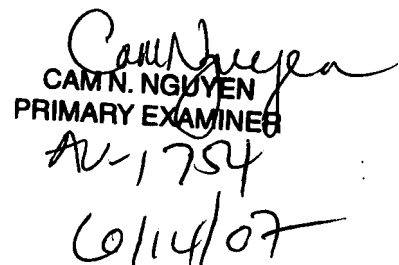 Cam Nguyen
CAM N. NGUYEN
PRIMARY EXAMINER
AU-1754
6/14/07